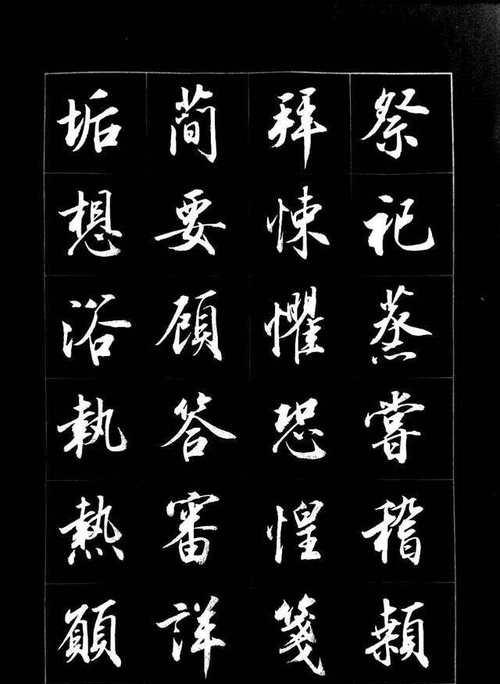 祭祀蒸嘗稽顙
拜悚懼恐惶箋
蕳要顧答審詳
垢想浴執熱願